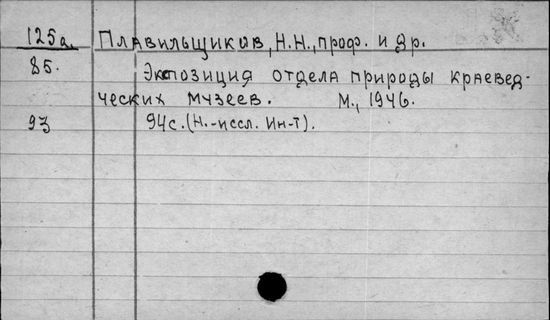 125а. Плавильщиков, Н.Н., проф. и др.
85. Экспозиция отдела природы краевед-
ческих музеев. М., 1946.
93 94с. (Н.-иссл. Ин-т).